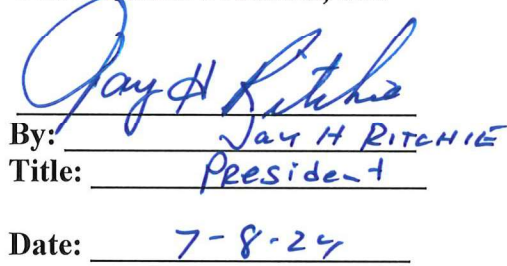 Jay H Ritchie
By: Jay H RITCHIE
Title: President
Date: 7-8-24